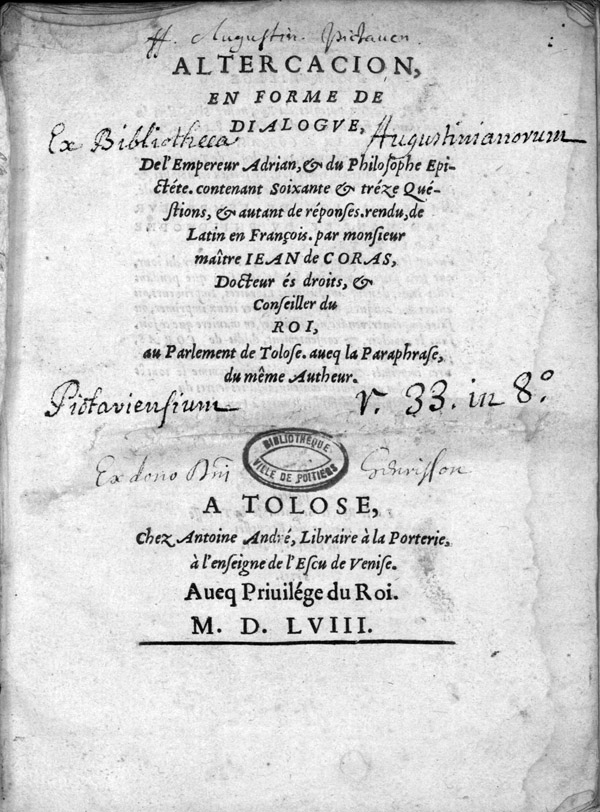 ff. Augustin. Pictaven.
ALTERCACION,
EN FORME DE
DIALOGVE,
Ex Bibliotheca Augustinianorum
De l'Empereur Adrian, & du Philosophe Epi-
ctéte. contenant Soixante & tréze Qué-
stions, & autant de réponses. rendu, de
Latin en François. par monsieur
maître IEAN de CORAS,
Docteur és droits, &
Conseiller du
ROI,
au Parlement de Tolose. aueq la Paraphrase,
du même Autheur.
Pictaviensium V. 33. in 8.°
BIBLIOTHÈQUE
VILLE DE POITIERS
Ex dono Dni
A TOLOSE,
Chez Antoine André, Libraire à la Porterie,
à l'enseigne de l'Escu de Venise.
Aueq Priuilége du Roi.
M. D. LVIII.